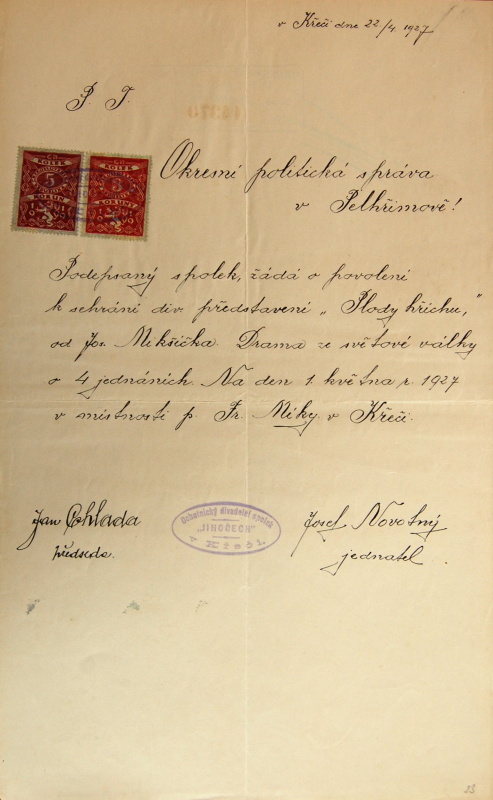 v Křeči dne 22/4. 1927
P. T.
Okresní politická správa
v Pelhřimově!
KOLEK
5
KORUN
KOLEK
3
KORUNY
Podepsaný spolek, žádá o povolení
k sehrání div představení „Plody hříchu,"
od Jos. Mikšíčka. Drama ze světové války
o 4 jednáních. Na den 1. května r. 1927
v místnosti p. Fr. Míky v Křeči.
Jan
předseda.
Ochotnický divadelní spolek
„JIHOČECH"
v Křeči.
Josef Novotný
jednatel.